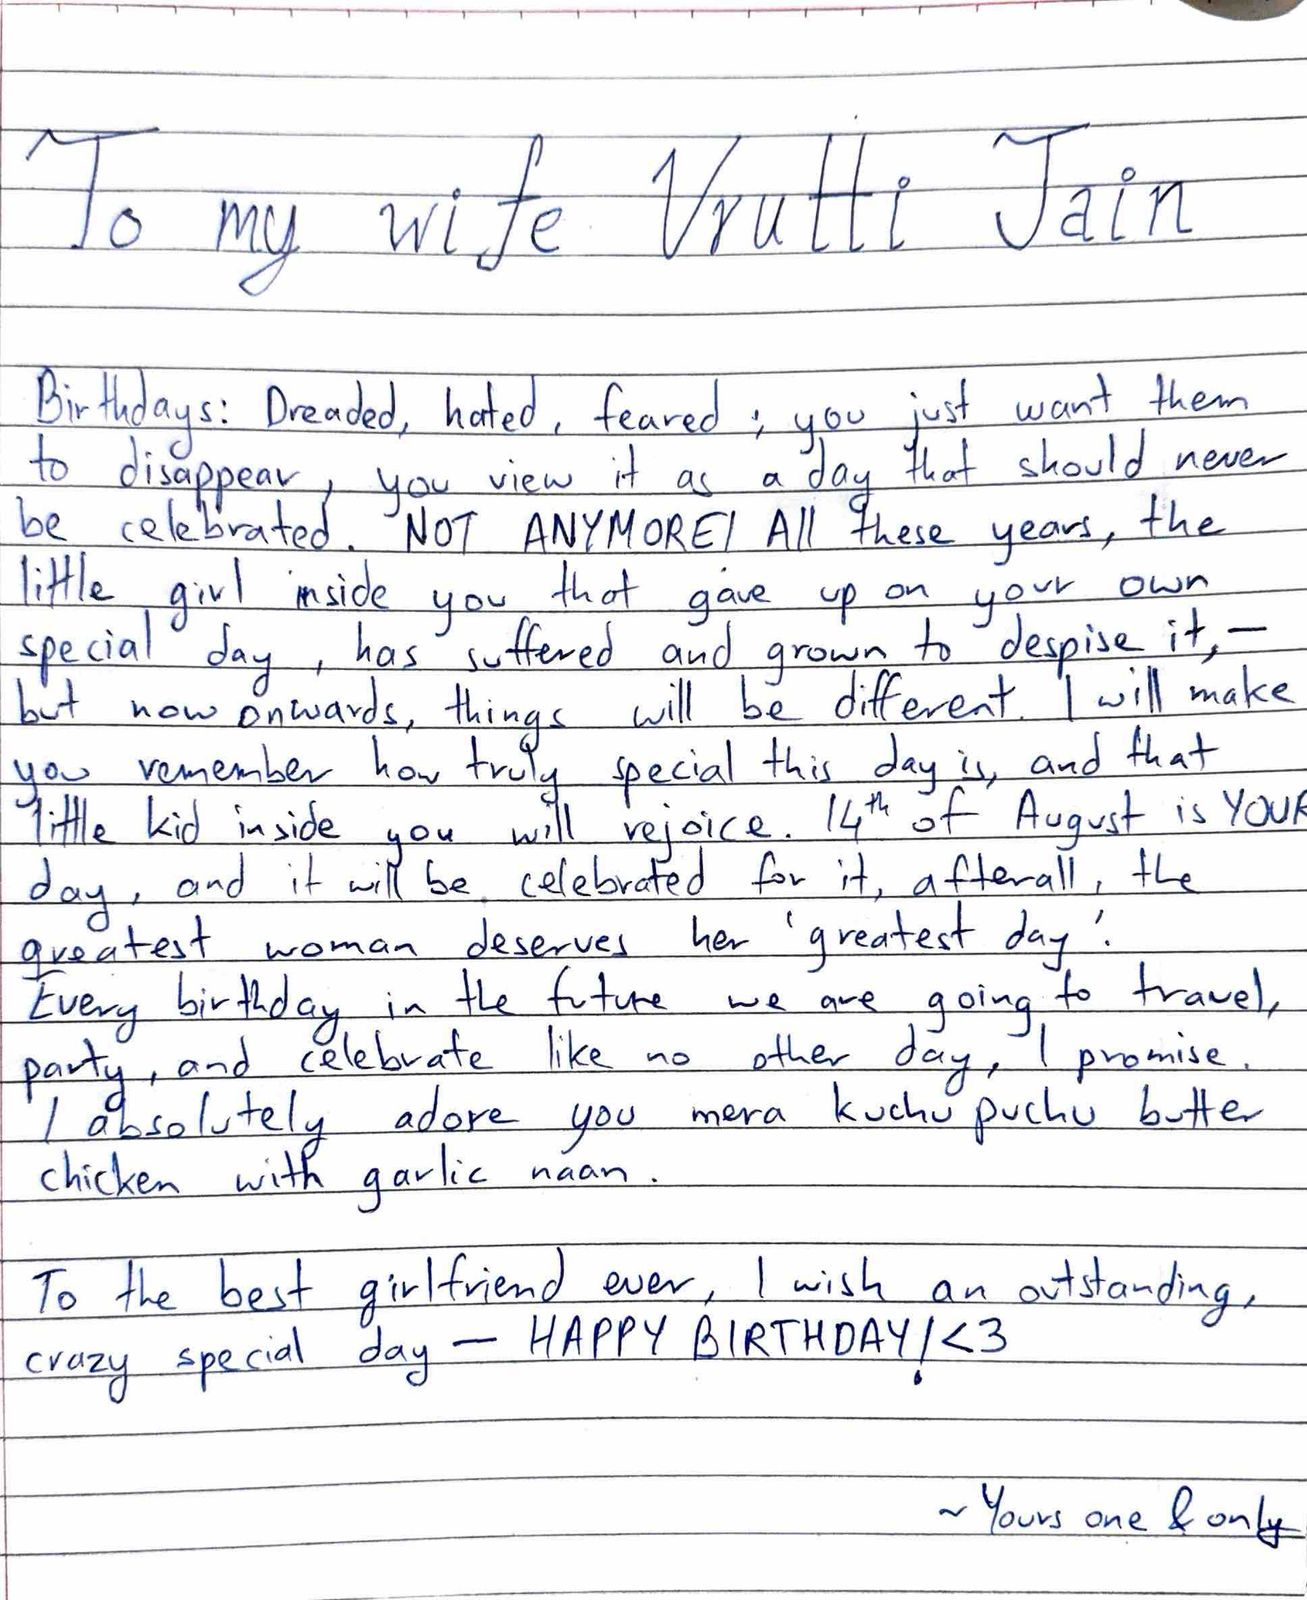 To my wife Vrutti Jain
Birthdays: Dreaded, hated, feared; you just want them
to disappear, you view it as a day that should never
be celebrated. NOT ANYMORE! All these years, the
little girl inside you that gave up on your own
special day, has suffered and grown to despise it, —
but now onwards, things will be different. I will make
you remember how truly special this day is, and that
little kid inside you will rejoice. 14th of August is YOUR
day, and it will be celebrated for it, afterall, the
greatest woman deserves her 'greatest day'.
Every birthday in the future we are going to travel,
party, and celebrate like no other day, I promise.
I absolutely adore you mera kuchu puchu butter
chicken with garlic naan.
To the best girlfriend ever, I wish an outstanding,
crazy special day — HAPPY BIRTHDAY! <3
~ Yours one & only